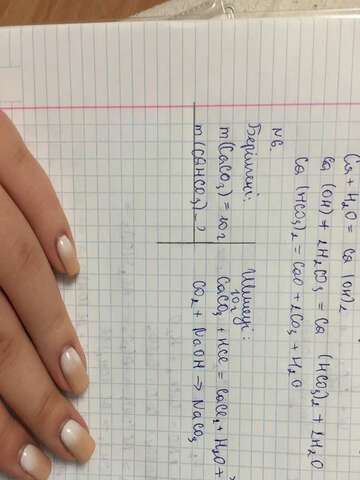 Ca + H₂O = Ca (OH)₂
Ca (OH) + 2H₂CO₃ = Ca (HCO₃)₂ + 2H₂O
Ca (HCO₃)₂ = CaO + 2CO₃ + H₂O
№6.
Берілгені: Шешуі:
10г
m(CaCO₃) = 10г CaCO₃ + HCl = CaCl₂ + H₂O +
m(CaHCO₃) - ? CO₂ + NaOH → NaCO₃